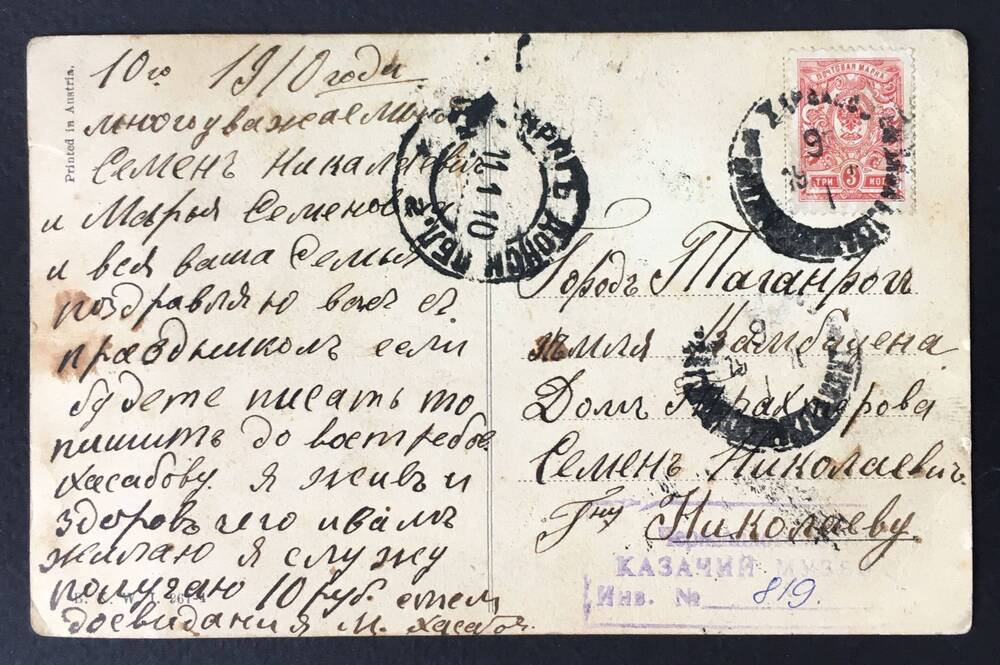 Printed in Austria.
10го 1910 года
многоуважаемый
Семенъ Никалаевич
и Марья Семеновна
и вся ваша Семья
поздравляю васъ съ
праздникомъ если
будете писать то
пишить до востребов
Хасабову я живъ и
здоровъ чего и вамъ
жилаю я служу
получаю 10 руб. стем
досвидания М. Хасабов.
ПОЧТОВАЯ МАРКА
ТРИ 3 КОП
11.1.10
9
Городъ Таганрог
земля Камбурена
Домъ
Семенъ Николаевич
Гну Николаеву
КАЗАЧИЙ МУЗЕЙ
Инв. № 819.